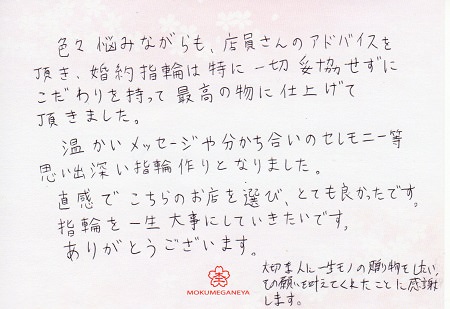 色々悩みながらも、店員さんのアドバイスを
頂き、婚約指輪は特に一切妥協せずに
こだわりを持って最高の物に仕上げて
頂きました。
温かいメッセージや分かち合いのセレモニー等
思い出深い指輪作りとなりました。
直感でこちらのお店を選び、とても良かったです。
指輪を一生大事にしていきたいです。
ありがとうございます。
大切な人に一生モノの贈り物をしたい、
その願いを叶えてくれたことに感謝
します。
MOKUMEGANEYA